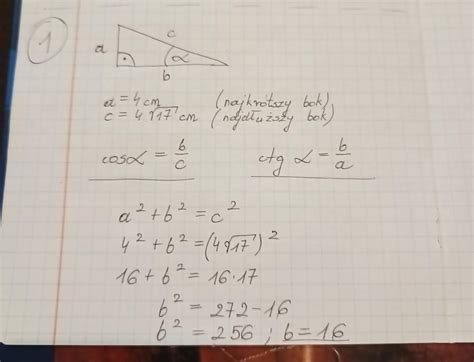 1
a
c
α
b
a = 4 cm (najkrótszy bok)
c = 4√17 cm (najdłuższy bok)
cosα = b/c ctg α = b/a
a² + b² = c²
4² + b² = (4√17)²
16 + b² = 16·17
b² = 272 - 16
b² = 256 ; b = 16